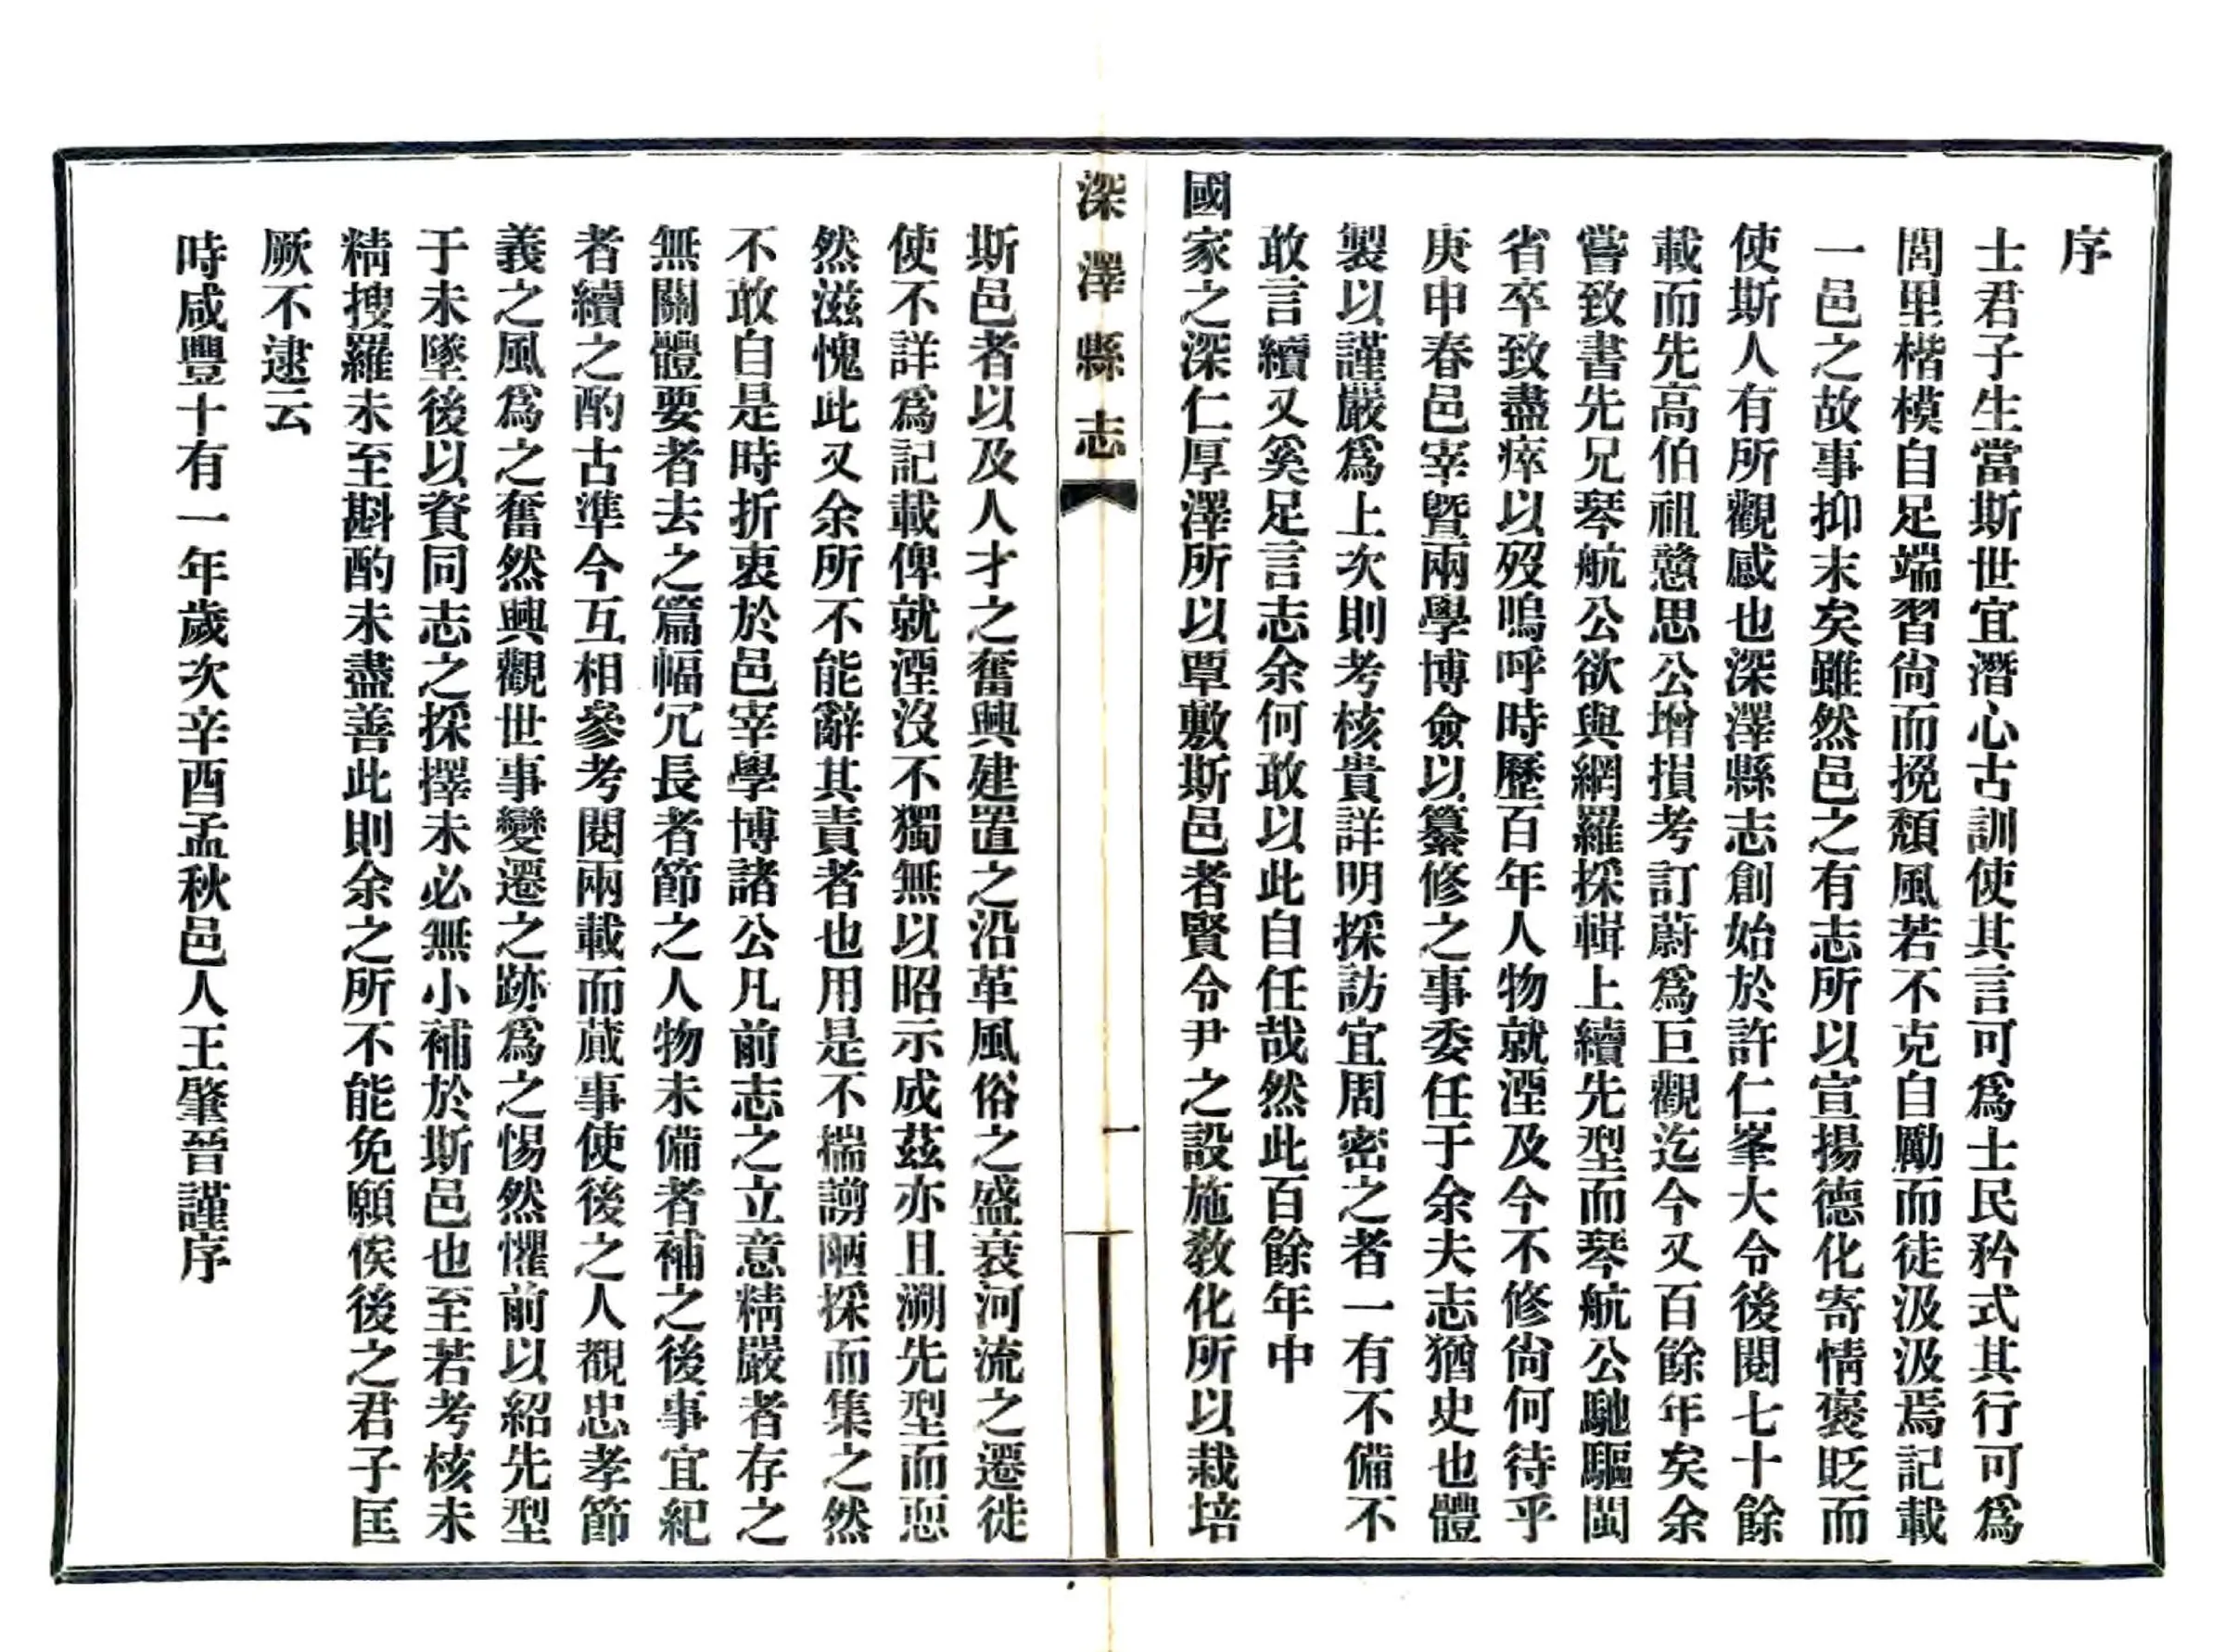 序
士君子生當斯世宜潛心古訓使其言可爲士民矜式其行可爲
閭里楷模自足端習尙而挽頹風若不克自勵而徒汲汲焉記載
一邑之故事抑末矣雖然邑之有志所以宣揚德化寄情褒貶而
使斯人有所觀感也深澤縣志創始於許仁峯大令後閱七十餘
載而先高伯祖戇思公增損考訂蔚爲巨觀迄今又百餘年矣余
嘗致書先兄琴航公欲與網羅採輯上續先型而琴航公馳驅閩
省卒致盡瘁以歿嗚呼時歷百年人物就湮及今不修尙何待乎
庚申春邑宰暨兩學博僉以纂修之事委任于余夫志猶史也體
製以謹嚴爲上次則考核貴詳明採訪宜周密之者一有不備不
敢言續又奚足言志余何敢以此自任哉然此百餘年中
國家之深仁厚澤所以覃敷斯邑者賢令尹之設施敎化所以栽培
深澤縣志
一
斯邑者以及人才之奮興建置之沿革風俗之盛衰河流之遷徙
使不詳爲記載俾就湮沒不獨無以昭示成茲亦且溯先型而恧
然滋愧此又余所不能辭其責者也用是不揣謭陋採而集之然
不敢自是時折衷於邑宰學博諸公凡前志之立意精嚴者存之
無關體要者去之篇幅冗長者節之人物未備者補之後事宜紀
者續之酌古準今互相參考閱兩載而蕆事使後之人覩忠孝節
義之風爲之奮然興觀世事變遷之跡爲之惕然懼前以紹先型
于未墜後以資同志之採擇未必無小補於斯邑也至若考核未
精搜羅未至斟酌未盡善此則余之所不能免願俟後之君子匡
厥不逮云
時咸豐十有一年歲次辛酉孟秋邑人王肇晉謹序